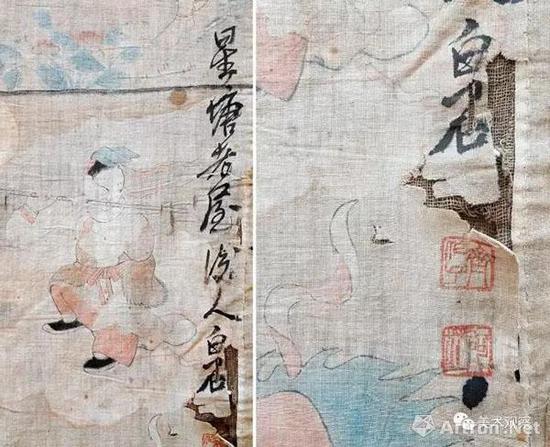 星塘老屋后人白石
白石
美术观察
Artron.Net